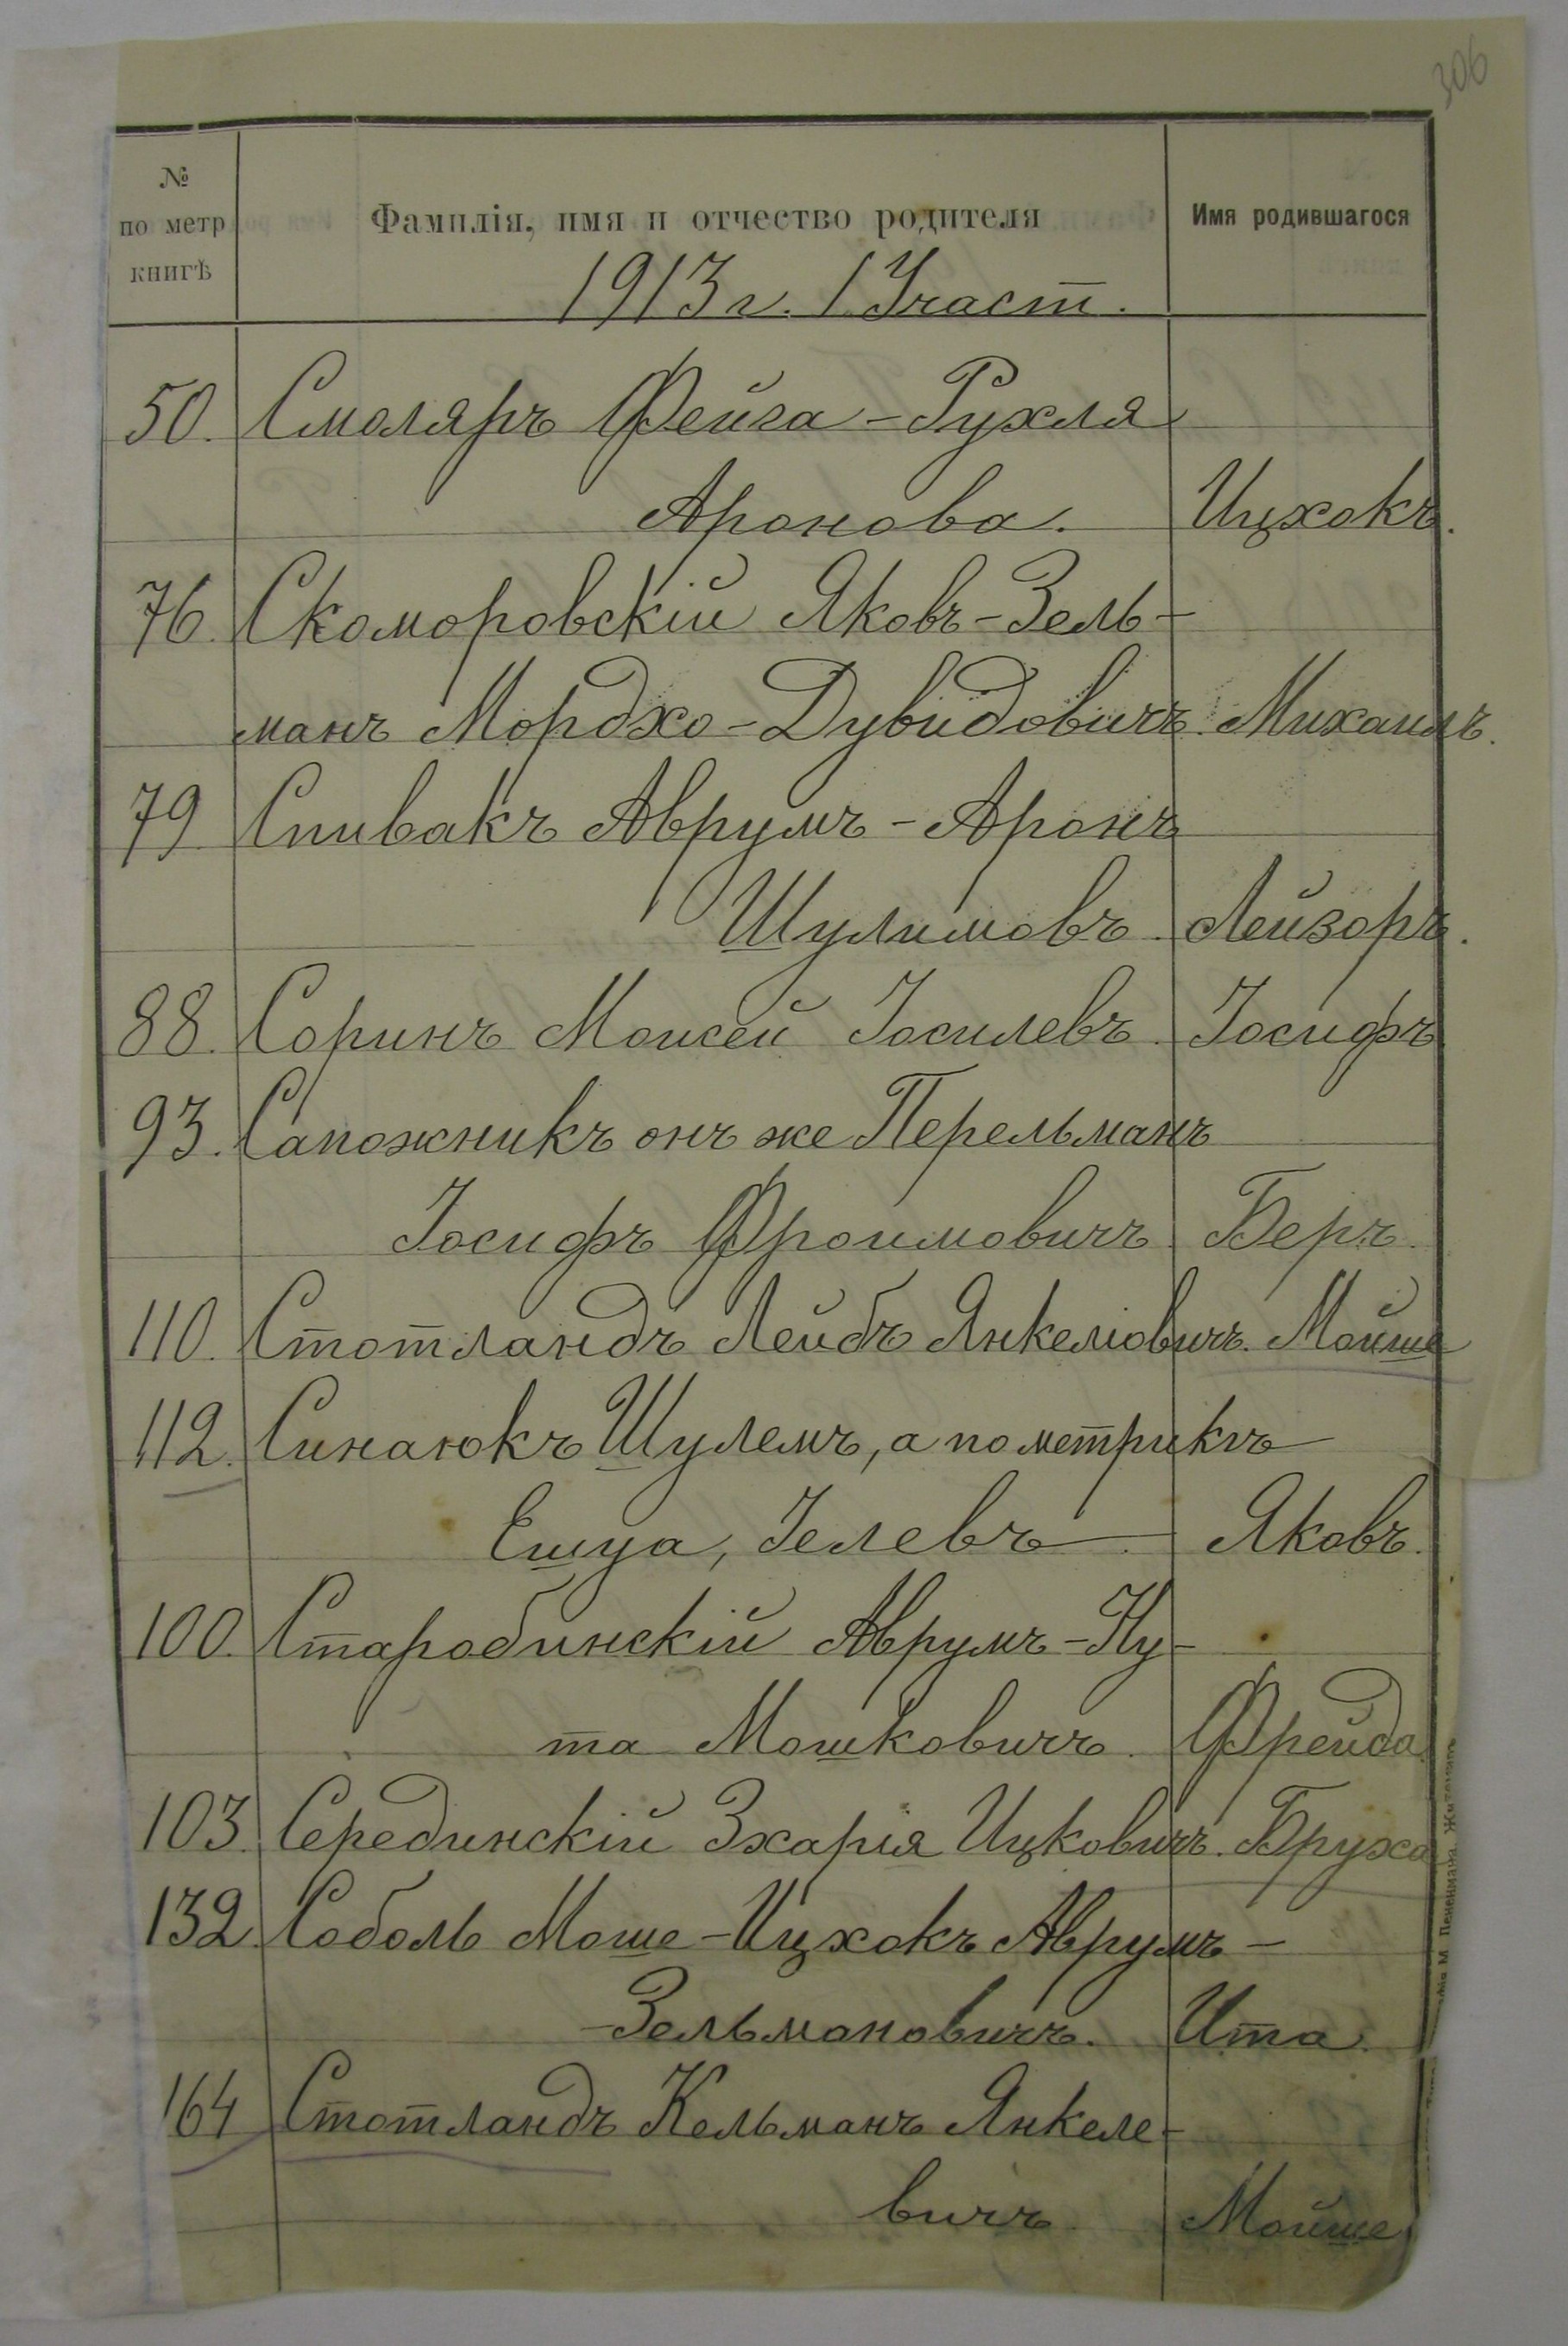 306
№
по метр
книгѣ
Фамилія, имя и отчество родителя
Имя родившагося
1913 г. 1 Участ.
50. Смоляръ Фейга-Рухля
Аронова. Ицхокъ.
76. Скоморовскій Яковъ-Зель-
манъ Мордхо-Дувидовичъ. Михаилъ.
79 Спивакъ Аврумъ-Аронъ
Шулимовъ. Лейзоръ.
88. Соринъ Моисей Іосилевъ. Іосифъ
93. Сапожникъ онъ же Перельманъ
Іосифъ Фроимовичъ Беръ.
110. Стотландъ Лейбъ Янкелювичъ. Мойше
112. Синаюкъ Шулемъ, а по метрикѣ
Ешуа, Іелевъ. Яковъ.
100. Старобинскій Аврумъ-Ну-
та Мошковичъ. Фрейда.
103. Серединскій Зхарія Ицковичъ. Бруха
132. Соболь Моше-Ицхокъ Аврумъ-
-Зельмановичъ. Ита.
164 Стотландъ Кельманъ Янкеле-
вичъ Мойше
М. Пененмана. Житомиръ